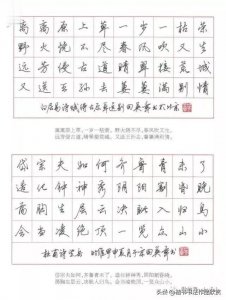 离离原上草一岁一枯荣
野火烧不尽春风吹又生
远芳侵古道晴翠接荒城
又送王孙去萋萋满别情
白居易诗赋得古原草送别
离离原上草，一岁一枯荣。野火烧不尽，春风吹又生。
远芳侵古道，晴翠接荒城。又送王孙去，萋萋满别情。
岱宗夫如何齐鲁青未了
造化钟神秀阴阳割昏晓
荡胸生层云决眦入归鸟
会当凌绝顶一览众山小
杜甫诗望岳
岱宗夫如何，齐鲁青未了。造化钟神秀，阴阳割昏晓。
荡胸生层云，决眦入归鸟。会当凌绝顶，一览众山小。